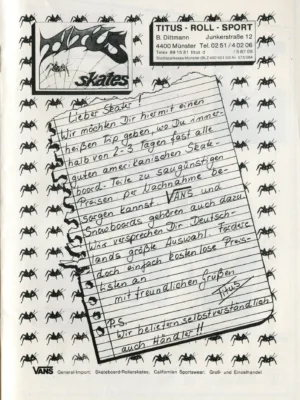 Titus
skates
TITUS - ROLL - SPORT
B. Dittmann Junkerstraße 12
4400 Münster Tel. 02 51 / 4 02 06
Lieber Skater!
Wir möchten Dir hiermit einen
heißen Tip geben, wo Du inner-
halb von 2-3 Tagen fast alle
guten amerikanischen Skate-
board-Teile zu saugünstigen
Preisen per Nachnahme be-
sorgen kannst. VANS und
Snowboards gehören auch dazu.
Wir versprechen Dir Deutsch-
lands größte Auswahl. Fordere
doch einfach kostenlose Preis-
listen an
mit freundlichen Grüßen
Titus
P.S.
Wir beliefern selbstverständlich
auch Händler!!
VANS General-Import: Skateboard/Rollerskates; Californien Sportswear; Groß- und Einzelhandel